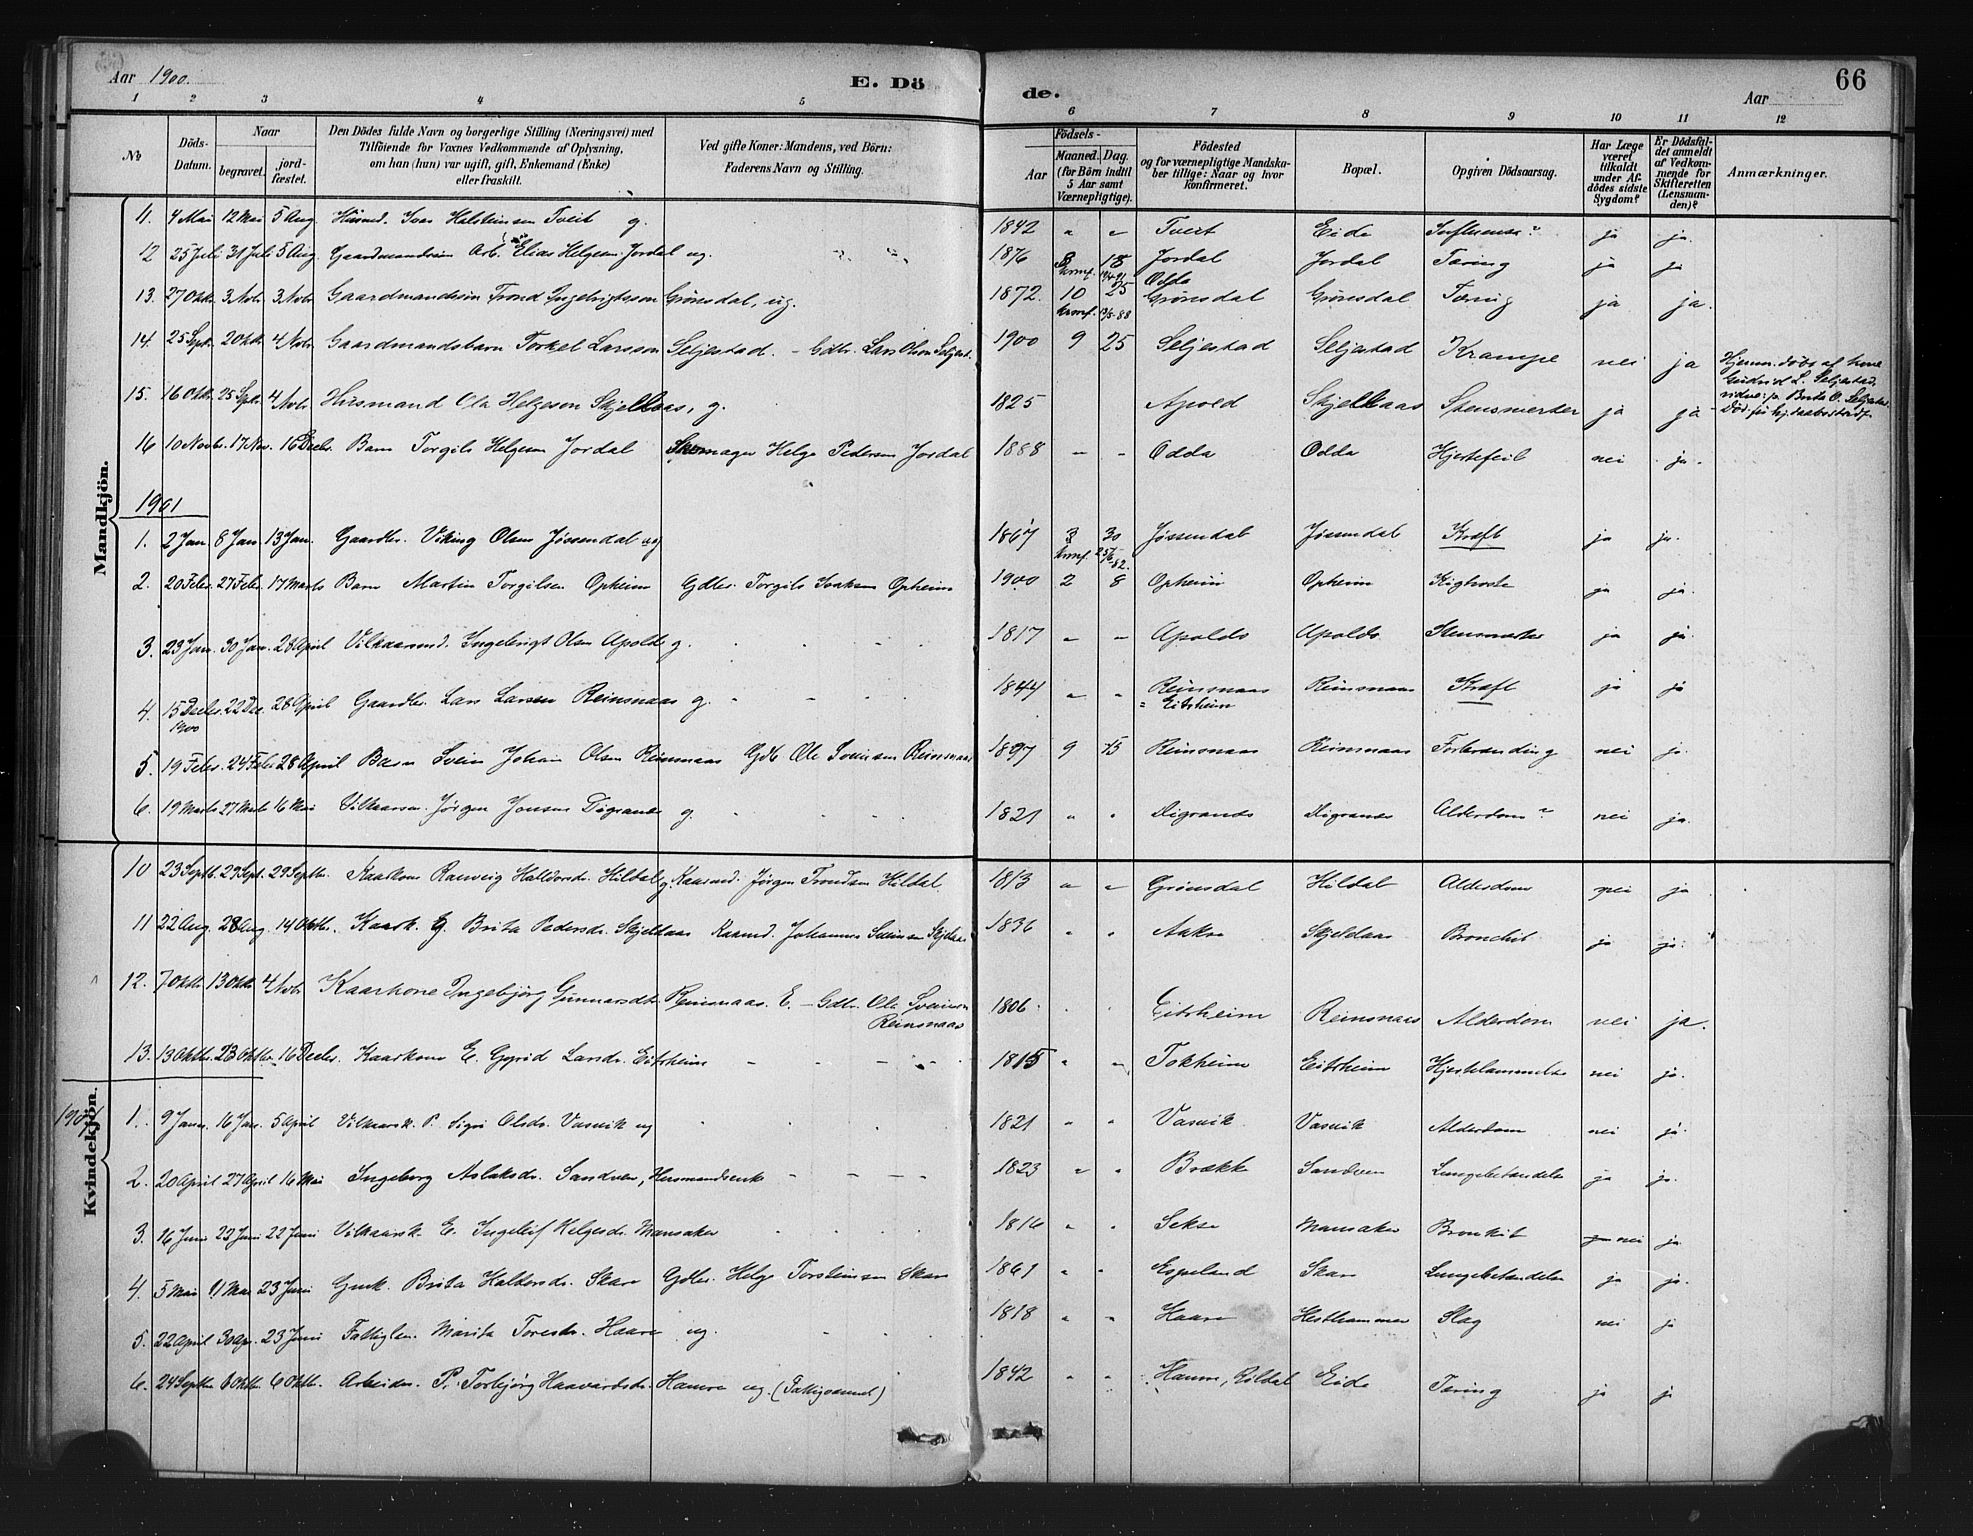 Aar 1900.
E. Dö
de.
Aar
66
1 2 3 4 5 6 7 8 9 10 11 12
No
Döds-Datum.
Naar
begravet.
jord-fæstet.
Den Dödes fulde Navn og borgerlige Stilling (Næringsvei) med
Tilföiende for Voxnes Vedkommende af Oplysning,
om han (hun) var ugift, gift, Enkemand (Enke)
eller fraskilt.
Ved gifte Koner: Mandens, ved Börn:
Faderens Navn og Stilling.
Födsels-
Aar
Maaned. Dag.
(for Börn indtil
5 Aar samt
Værnepligtige).
Födested
og for værnepligtige Mandska-
ber tillige: Naar og hvor
konfirmeret.
Bopæl.
Opgiven Dödsaarsag.
Har Læge
været
tilkaldt
under Af-
dödes sidste
Sygdom?
Er Dödsfal-
det anmeldt
af Vedkom-
mende for
Skifteretten
(Lensman-
den)?
Anmærkninger.
Mandkjön.
11. 4 Mai 12 Mai 5 Aug. Husmd. Ivar Halsteinsen Tveit g. 1842 " " Tveit Eide Influensa? ja ja.
12 25 Juli 31 Juli 5 Aug. Gaardmandssøn Arb. Elias Helgesen Jordal ug. " " " 1876 8 18 Jordal Jordal Tæring ja ja
konf. 19/4-91 Odda
13. 27 Oktr. 3 Novbr. 3. Novbr. Gaardmandssøn Trond Ingebrigtsson Grönsdal, ug. 1872. 10 25 Grönsdal Grönsdal Tæring ja ja.
konf. 13/5-88
14. 25 Septr. 2 Oktr. 4 Novbr. Gaardmandsbarn Torkel Larsson Seljestad. - Gdbr. Lars Olson Seljest. 1900 9 25 Seljestad Seljestad Krampe nei ja Hjemmedöbt af kone
Gudrid L. Seljestad,
vidne: p. Brita O. Seljestad.
15. 16 Oktr. 25 Septr. 4 Novbr. Husmand Ola Helgeson Skjellaas, g. 1825 Apold Skjellaas Stensmerter ja ja
16 10 Novbr. 17 Nov. 16 Decbr. Barn Torgils Helgesen Jordal Skomager Helge Pedersen Jordal 1888 " " Odda Odda Hjertefeil nei ja.
1901
1. 2 Jan 8 Jan. 13 Jan. Gaardbr. Viking Olsen Jössendal ug 1867 3 30 Jössendal Jössendal Kræft ja ja.
konf. 25/6-82.
2. 20 Febr. 27 Febr. 17 Marts Barn Martin Torgilsen Opheim Gdbr. Torgils Isaksen Opheim 1900 2 8 Opheim Opheim Kighoste ja ja.
3. 23 Jan. 30 Jan. 28 April Vilkaarsmd. Ingebrigt Olsen Apold g. 1817 " " Apolds Apolds Stensmerter ja ja.
4. 15 Decbr. 22 Dec. 28 April Gaardbr. Lars Larsen Reinsnaas g. 1844 " " Reinsnaas Reinsnaas Kræft ja ja
1900 = Eitrheim
5. 19 Febr. 24 Febr. 28 April Barn Svein Johan Olsen Reinsnaas Gdb Ole Sveinsen Reinsnaas 1897 9 15 Reinsnaas Reinsnaas Forbrænding nei ja.
6. 19 Marts 27 Marts 16 Mai Vilkaarsm. Jörgen Jonsen Digranes g. 1821 " " Digranes Digranes Alderdom? nei ja.
Kvindekjön.
10 23 Septb. 29 Sept. 29 Septbr. Kaarkone Ranveig Halldorsdr. Hildal g Kaarmd. Jörgen Trondsen Hildal 1813 " " Grönsdal Hildal Alderdom nei ja
11 22 Aug. 28 Aug. 14 Oktbr. Kaark. G. Brita Pedersdr. Skjellaas Kaarmd. Johannes Sveinsen Skjelaas 1836 " " Aakre Skjeldaas Bronchit ja ja.
12. 7 Oktr. 13 Oktr. 4 Novbr. Kaarkone Ingebjörg Gunnarsdtr. Reinsnaas. E. - Gdbr. Ole Sveinson
Reinsnaas 1806 Eitrheim Reinsnaas Alderdom nei ja.
13. 13 Oktbr. 23 Oktbr. 16 Decbr. Kaarkone E. Gyrid Larsdr. Eitrheim 1815 " " Tokheim Eitrheim Hjertelammelse nei ja.
1901
1. 9 Janr. 16 Jan. 5 April Vilkaarsk. P. Sigri Olsdr. Vasvik ug 1821 " " Vasvik Vasvik Alderdom nei ja.
2. 20 April 27 April 16 Mai Ingeborg Aslaksdr. Sandven, Husmandsenke 1823 " " Brække Sandven Lungebetændelse ja ja.
3. 16 Juni 22 Juni 22 Juni Vilkaarsk. E. Ingeleif Helgesdr. Mansaker 1816 " " Sekse Mansaker Bronkit nei ja
4. 5 Mai 11 Mai 23 Juni Gmk. Brita Haldorsdr. Skare Gdbr. Helge Torsteinsen Skare 1861 " " Espeland Skare Lungebetændelse ja ja.
5. 22 April 30 Apr. 23 Juni Fattiglem. Marita Toresdr. Haare ug. 1818 " " Haare Hesthammer Slag nei ja
6. 24 Septbr. 6 Oktbr. 6 Oktbr. Arbeider P. Torbjörg Haavardsdr. Hamre ug. (Fattigvæsenet) 1842 " " Hamre, Röldal Eide Tæring ja ja